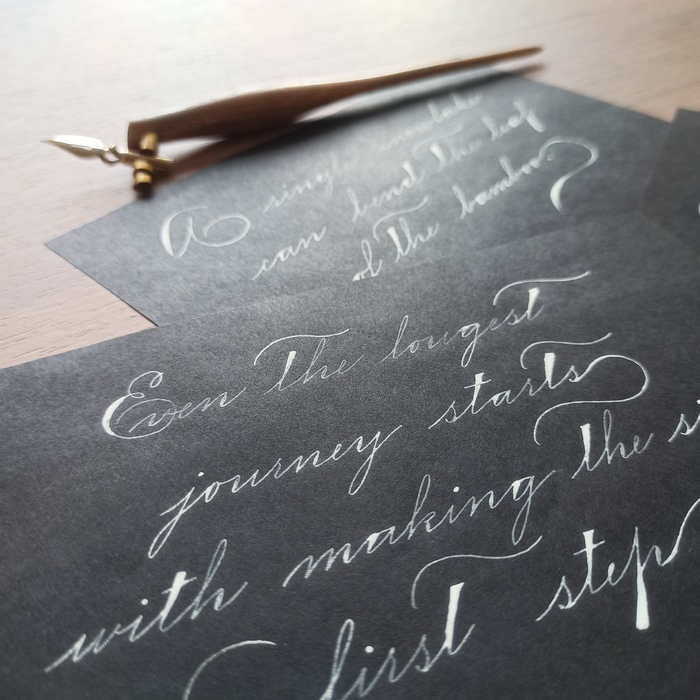 A single
can bend the leaf
of the bamboo
Even the longest
journey starts
with making the
first step